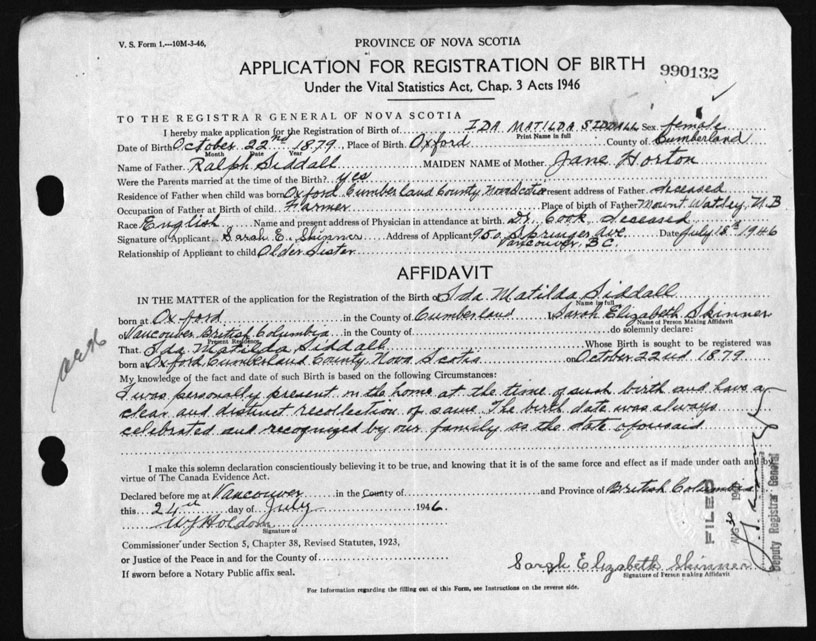 V. S. Form 1.—10M-3-46,
PROVINCE OF NOVA SCOTIA
APPLICATION FOR REGISTRATION OF BIRTH
990132
Under the Vital Statistics Act, Chap. 3 Acts 1946
TO THE REGISTRAR GENERAL OF NOVA SCOTIA
I hereby make application for the Registration of Birth of IDA MATILDA SIDDALL Sex female
Print Name in full
Date of Birth October 22nd 1879, Place of Birth Oxford County of Cumberland
Month Date Year
Name of Father Ralph Siddall MAIDEN NAME of Mother Jane Horton
Were the Parents married at the time of the Birth? yes
Residence of Father when child was born Oxford Cumberland County Nova Scotia Present address of Father deceased
Occupation of Father at Birth of child Farmer Place of birth of Father Mount Watley, N.B
Race English Name and present address of Physician in attendance at birth Dr. Cook deceased
Signature of Applicant Sarah E. Skinner Address of Applicant 950 Springer Ave. Vancouver, B.C. Date July 18th 1946
Relationship of Applicant to child Older Sister
AFFIDAVIT
IN THE MATTER of the application for the Registration of the Birth of Ida Matilda Siddall
Name in full
born at Oxford in the County of Cumberland I, Sarah Elizabeth Skinner
Name of Person Making Affidavit
of Vancouver British Columbia in the County of do solemnly declare:
Present Residence
That Ida Matilda Siddall Whose Birth is sought to be registered was
born at Oxford, Cumberland County, Nova Scotia on October 22nd 1879.
My knowledge of the fact and date of such Birth is based on the following Circumstances:
I was personally present in the home at the time of such birth and have a
clear and distinct recollection of same. The birth date was always
celebrated and recognized by our family as the date aforesaid
I make this solemn declaration conscientiously believing it to be true, and knowing that it is of the same force and effect as if made under oath and by
virtue of The Canada Evidence Act.
Declared before me at Vancouver in the County of and Province of British Columbia
this 24th day of July 1946
WJ Holdom
Signature of
Commissioner under Section 5, Chapter 38, Revised Statutes, 1923,
or Justice of the Peace in and for the County of
If sworn before a Notary Public affix seal.
Sarah Elizabeth Skinner
Signature of Person making Affidavit
For Information regarding the filling out of this Form, see Instructions on the reverse side.
FILED
AUG 30
Deputy Registrar General